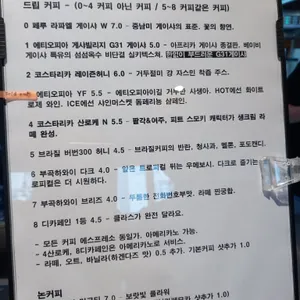 드립 커피 - (0~4 커피 아닌 커피 / 5~8 커피같은 커피)
0 페루 라파젤 게이샤 W 7.0 - 중남미 게이샤의 표준. 꽃의 향연.
1 에티오피아 게샤빌리지 G31 게이샤 5.0 - 아프리카 게이샤 종결판. 베이비
게이샤 특유의 섬섬옥수 비단결 실키텍스쳐.
2 코스타리카 레이즌허니 6.0 - 거두절미 걍 자스민 착즙 주스.
에티오피아 YF 5.5 - 에티오피아이길 거부한 사생아. HOT에선 화이트
로제 와인. ICE에선 샤인머스켓 돔페리뇽 샴페인.
4 코스타리카 산로케 N 5.5 - 팥각&어주, 피트 스모키 캐릭터가 생크림 라떼
완성.
5 브라질 버번300 허니 4.5 - 브라질커피의 반란. 청사과, 멜론, 포도캔디.
6 부곡하와이 다크 4.0 - 트로피컬 뛰는 우베보시. 다크로 즐기는
로피컬은 더 시원하다.
7 부곡하와이 브리즈 4.0 - 라떼 찐공합.
8 디카페인 1등 4.5 - 클라스가 완전 달라요.
- 모든 커피 에스프레소 동일가. 아메리카노 가능.
- 4산로케, 8디카페인은 아메리카노로 서비스.
- 라떼, 오트, 바닐라(하겐다즈 맛) 0.5 추가. 기본커피 샷추가 1.0
논커피